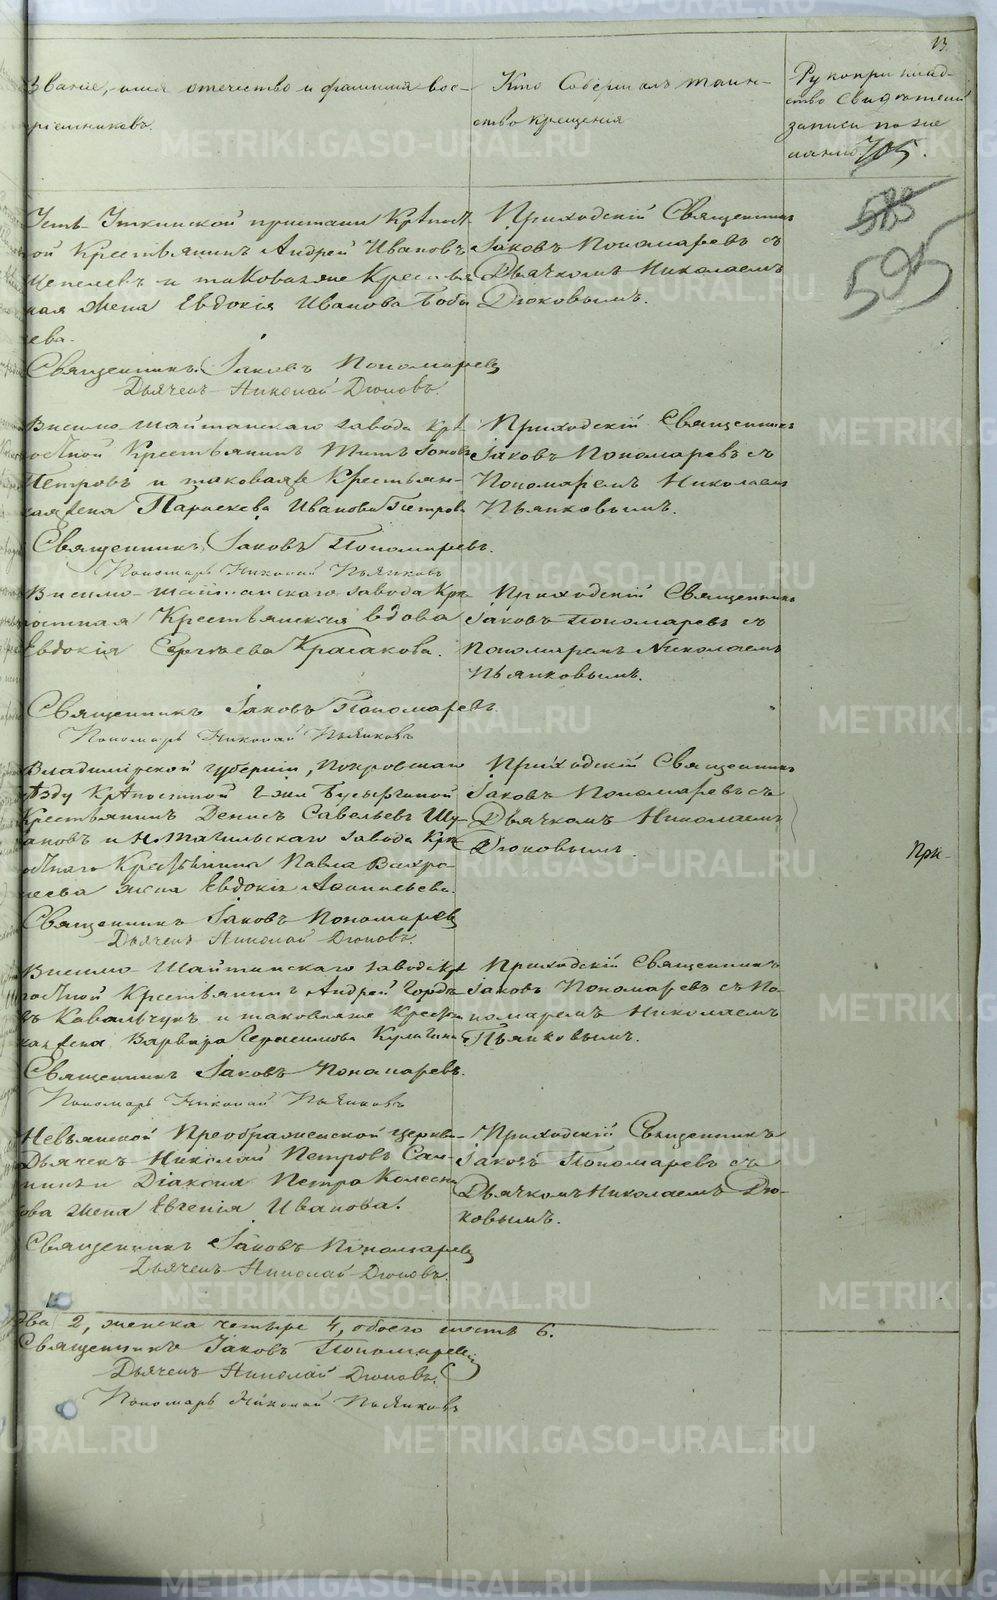 13
Званіе, имя отечество и фамилия вос-
пріемниковъ.
Кто Совершалъ таин-
ство крещения
Рукоприклад-
ство свидѣтелей
записи по же
ланію
705.
583
595
Усть-Уткинской пристани Крѣпост
ной Крестьянинъ Андрей Ивановъ
Шепелевъ и таковая же Крестья
ская жена Евдокія Иванова Бобы
лева.
Приходскій Священникъ
Іаковъ Пономаревъ съ
Дьячкомъ Николаемъ
Дюковымъ.
Священникъ Іаковъ Пономаревъ
Дьячекъ Николай Дюковъ.
Висимо-Шайтанскаго завода Крѣ
постной Крестьянинъ Титъ
Петровъ и таковая же Крестьян-
ская жена Параскева Иванова Петрова
Приходскій Священникъ
Іаковъ Пономаревъ съ
Пономаремъ Николаем
Пьянковымъ.
Священникъ Іаковъ Пономаревъ.
Пономарь Николай Пьянковъ
Висимо-Шайтанскаго завода Крѣ
постная Крестьянская вдова
Евдокія Сергѣева Красакова.
Приходскій Священникъ
Іаковъ Пономаревъ съ
Пономаремъ Николаемъ
Пьянковымъ.
Священникъ Іаковъ Пономаревъ
Пономарь Николай Пьянковъ
Владимірской губерніи, Покровскаго
уѣзду Крѣпостной Г-жи
Крестьянинъ Денисъ Савельевъ Шу
ановъ и Н.Тагильскаго завода Крѣ
постнаго Крестьянина Павла Вахро
меева жена Евдокія Афанасьева.
Приходскій Священникъ
Іаковъ Пономаревъ съ
Дьячкомъ Николаемъ
Дюковымъ.
При-
Священникъ Іаковъ Пономаревъ
Дьячекъ Николай Дюковъ.
Висимо-Шайтанскаго завода Крѣ
постной Крестьянинъ Андрей Гордѣе
въ Ковальчукъ и таковая же Крестья
ская жена Варвара Герасимова
Приходскій Священникъ
Іаковъ Пономаревъ съ По-
номаремъ Николаемъ
Пьянковымъ.
Священникъ Іаковъ Пономаревъ.
Пономарь Николай Пьянковъ
Невьянской Преображенской церкви
Дьячекъ Николай Петровъ Сал-
нинъ и Діакона Петра Колесни
кова жена Евгенія Иванова.
Приходскій Священникъ
Іаковъ Пономаревъ съ
Дьячкомъ Николаемъ Дю-
ковымъ.
Священникъ Іаковъ Пономаревъ
Дьячекъ Николай Дюковъ.
два 2, женска четыре 4, обоего шесть 6.
Священникъ Іаковъ Пономаревъ
Дьячекъ Николай Дюковъ.
Пономарь Николай Пьянковъ
METRIKI.GASO-URAL.RU